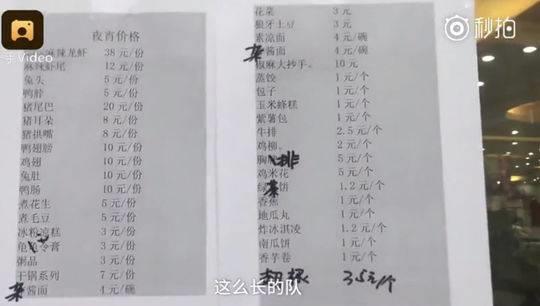 秒拍
Video
夜宵价格
麻辣龙虾 38 元/份
麻辣虾尾 12 元/份
兔头 5 元/份
鸭脖 5 元/份
猪尾巴 20 元/份
猪耳朵 8 元/份
猪拱嘴 8 元/份
鸭翅膀 10 元/份
鸡翅 10 元/份
兔肚 10 元/份
鸭肠 10 元/份
煮花生 5 元/份
煮毛豆 5 元/份
冰粉凉糕 3 元/份
龟苓膏 3 元/份
粥品 3 元/份
干锅系列 7 元/份
杂酱面 4 元/碗
花菜 3 元
狼牙土豆 3 元
素凉面 4 元/碗
杂酱面 4 元/碗
椒麻大抄手 10 元
蒸饺 1 元/个
包子 1 元/个
玉米蜂糕 1 元/个
紫薯包 1 元/个
牛排 2.5 元/个
鸡柳 2 元/个
胸排 5 元/个
鸡米花 5 元/个
饼 1.2 元/个
香蕉 1 元/个
地瓜丸 1 元/个
炸冰淇凌 1.2 元/个
南瓜饼 1 元/个
香芋卷 1 元/个
35元/个
这么长的队